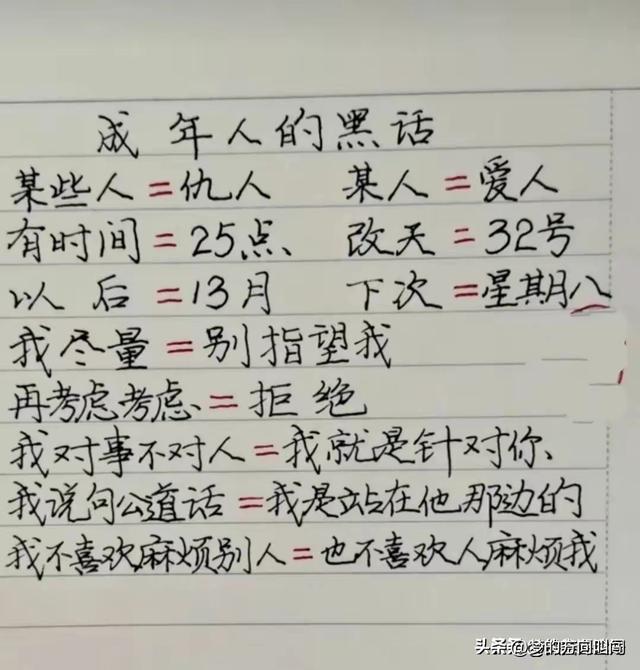 成年人的黑话
某些人=仇人 某人=爱人
有时间=25点、 改天=32号
以后=13月 下次=星期八
我尽量=别指望我
再考虑考虑、=拒绝
我对事不对人=我就是针对你、
我说句公道话=我是站在他那边的
我不喜欢麻烦别人=也不喜欢人麻烦我
头条 @梦的方向叫闯